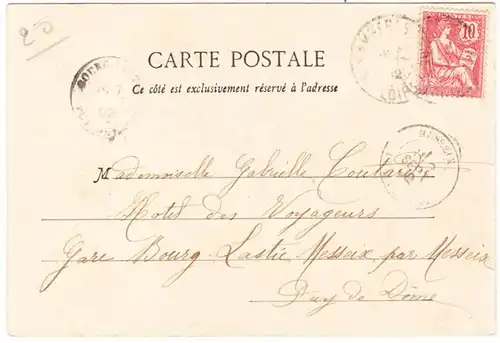 25
10
CARTE POSTALE
Ce côté est exclusivement réservé à l'adresse
MESSEIX
Mademoiselle Gabrielle Coutard
Hotel des Voyageurs
Gare Bourg-Lastic Messeix par Messeix
Puy de Dôme